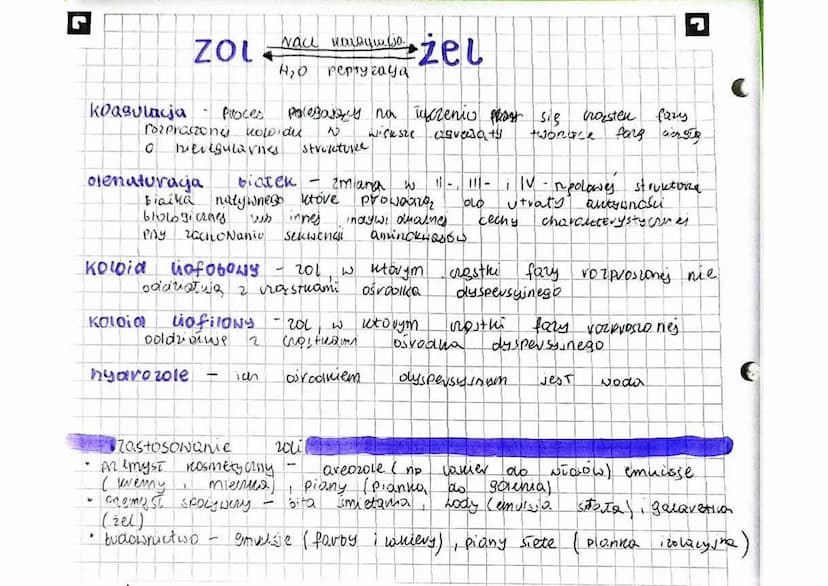 ZOL NaCl koagulacja żel
H₂O peptyzacja
koagulacja - proces polegający na łączeniu się cząstek fazy
rozproszonej koloidu w większe agregaty tworzące fazę ciągłą
o nieregularnej strukturze
denaturacja białek - zmiana w II-, III- i IV-rzędowej strukturze
białka natywnego które prowadzą do utraty aktywności
biologicznej lub innej indywidualnej cechy charakterystycznej
przy zachowaniu sekwencji aminokwasów
koloid liofobowy - zol, w którym cząstki fazy rozproszonej nie
oddziałują z cząstkami ośrodka dyspersyjnego
koloid liofilowy - zol, w którym cząstki fazy rozproszonej
oddziałuje z cząstkami ośrodka dyspersyjnego
hydrozole - ich ośrodkiem dyspersyjnym jest woda
zastosowanie zoli
• przemysł kosmetyczny - areozole (np lakier do włosów) emulsje
(kremy i mleczka), piany (pianka do golenia)
• przemysł spożywczy - bita śmietana, lody (emulsja stała), galaretka
(żel)
• budownictwo - emulsje (farby i lakiery), piany (pianka izolacyjna)